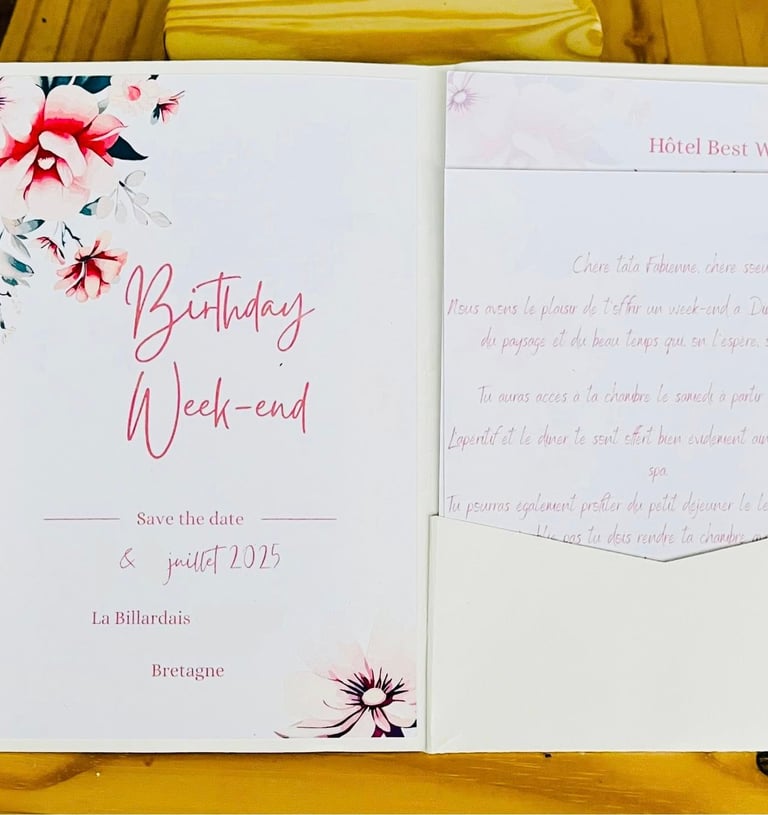 Birthday
Week-end
Save the date
& juillet 2025
La Billardais
Bretagne
Hôtel Best W
Chère tata Fabienne, chère soeu
Nous avons le plaisir de t'offrir un week-end a Du
du paysage et du beau temps qui, on l'espère, s
Tu auras accès à ta chambre le samedi à partir
L'apéritif et le diner te sont offert bien évidement ain
spa.
Tu pourras également profiter du petit déjeuner le le
pas tu dois rendre ta chambre av